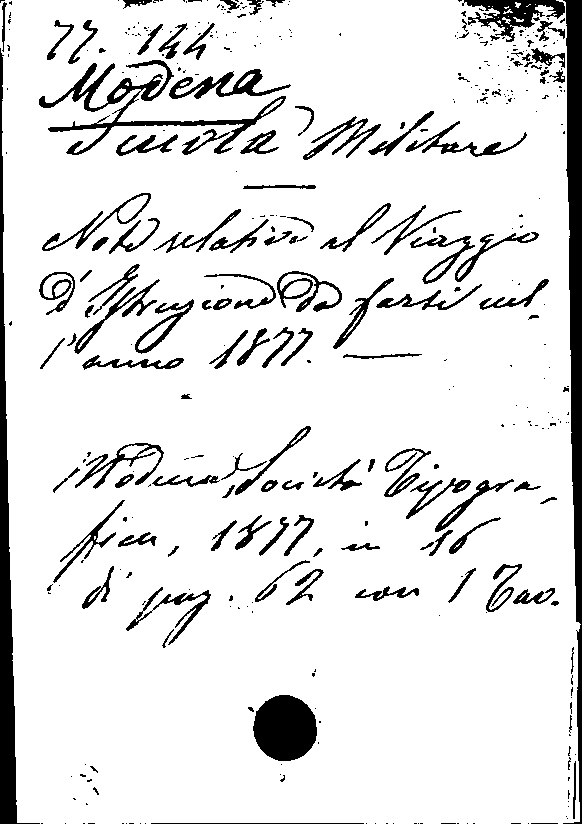 77. 144
Modena
Scuola Militare
Note relative al Viaggio
d'Istruzione da farsi nel-
l'anno 1877. —
Modena, Società Tipogra-
fica, 1877, in 16
di pag. 62 con 1 Tav.